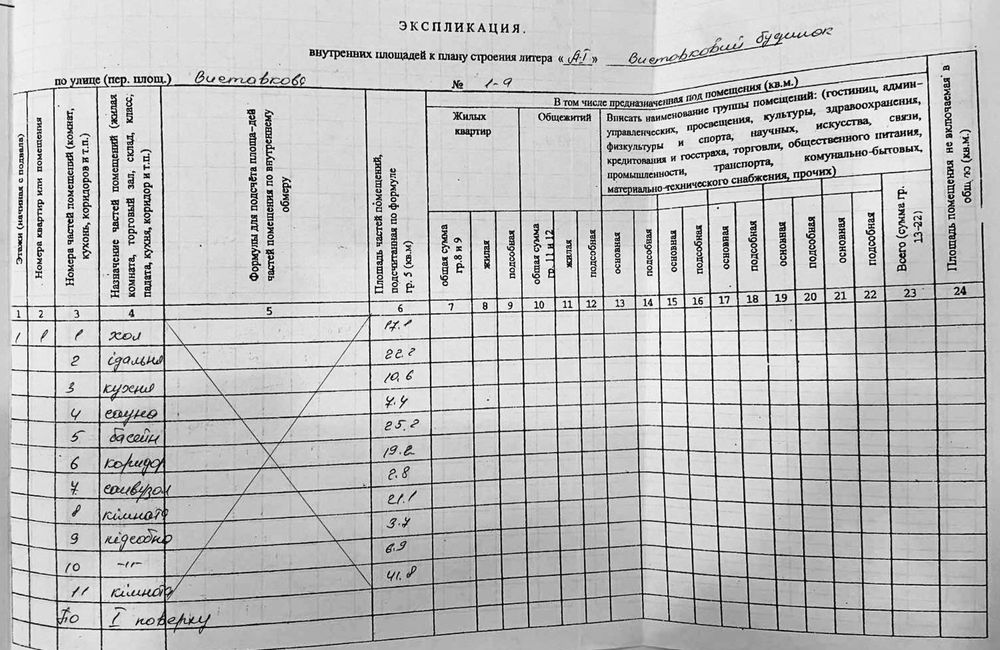 ЭКСПЛИКАЦИЯ.
внутренних площадей к плану строения литера « А-I » Виставковий будинок
по улице (пер. площ.) Виставкова № 1-9
Этажи (начиная с подвала)
Номера квартир или помещения
Номера частей помещений (комнат, кухонь, коридоров и т.п.)
Назначение частей помещений (жилая комната, торговый зал, склад, класс, падата, кухня, коридор и т.п.)
Формулы для подсчёта площа-дей частей помещения по внутреннему обмеру
Площадь частей помещений, подсчитанная по формуле гр. 5 (кв.м)
В том числе предназначенная под помещения (кв.м.)
Жилых квартир
Общежитий
Вписать наименование группы помещений: (гостиниц, админ-управленческих, просвещения, культуры, здравоохранения, физкультуры и спорта, научных, искусства, связи, кредитования и госстраха, торговли, общественного питания, промышленности, транспорта, комунально-бытовых, материально-технического снабжения, прочих)
общая сумма гр.8 и 9
жилая
подсобная
общая сумма гр. 11 и 12
жилая
подсобная
основная
подсобная
основная
подсобная
основная
подсобная
основная
подсобная
основная
подсобная
Всего (сумма гр. 13-22)
Площадь помещения не включаемая в общую (кв.м.)
1 2 3 4 5 6 7 8 9 10 11 12 13 14 15 16 17 18 19 20 21 22 23 24
1 1 1 хол 17.1
2 їдальня 22.2
3 кухня 10.6
4 сауна 7.4
5 басейн 25.2
6 коридор 19.2
7 санвузол 2.8
8 кімната 21.1
9 підсобна 3.7
10 -"- 6.9
11 кімната 41.8
По I поверху